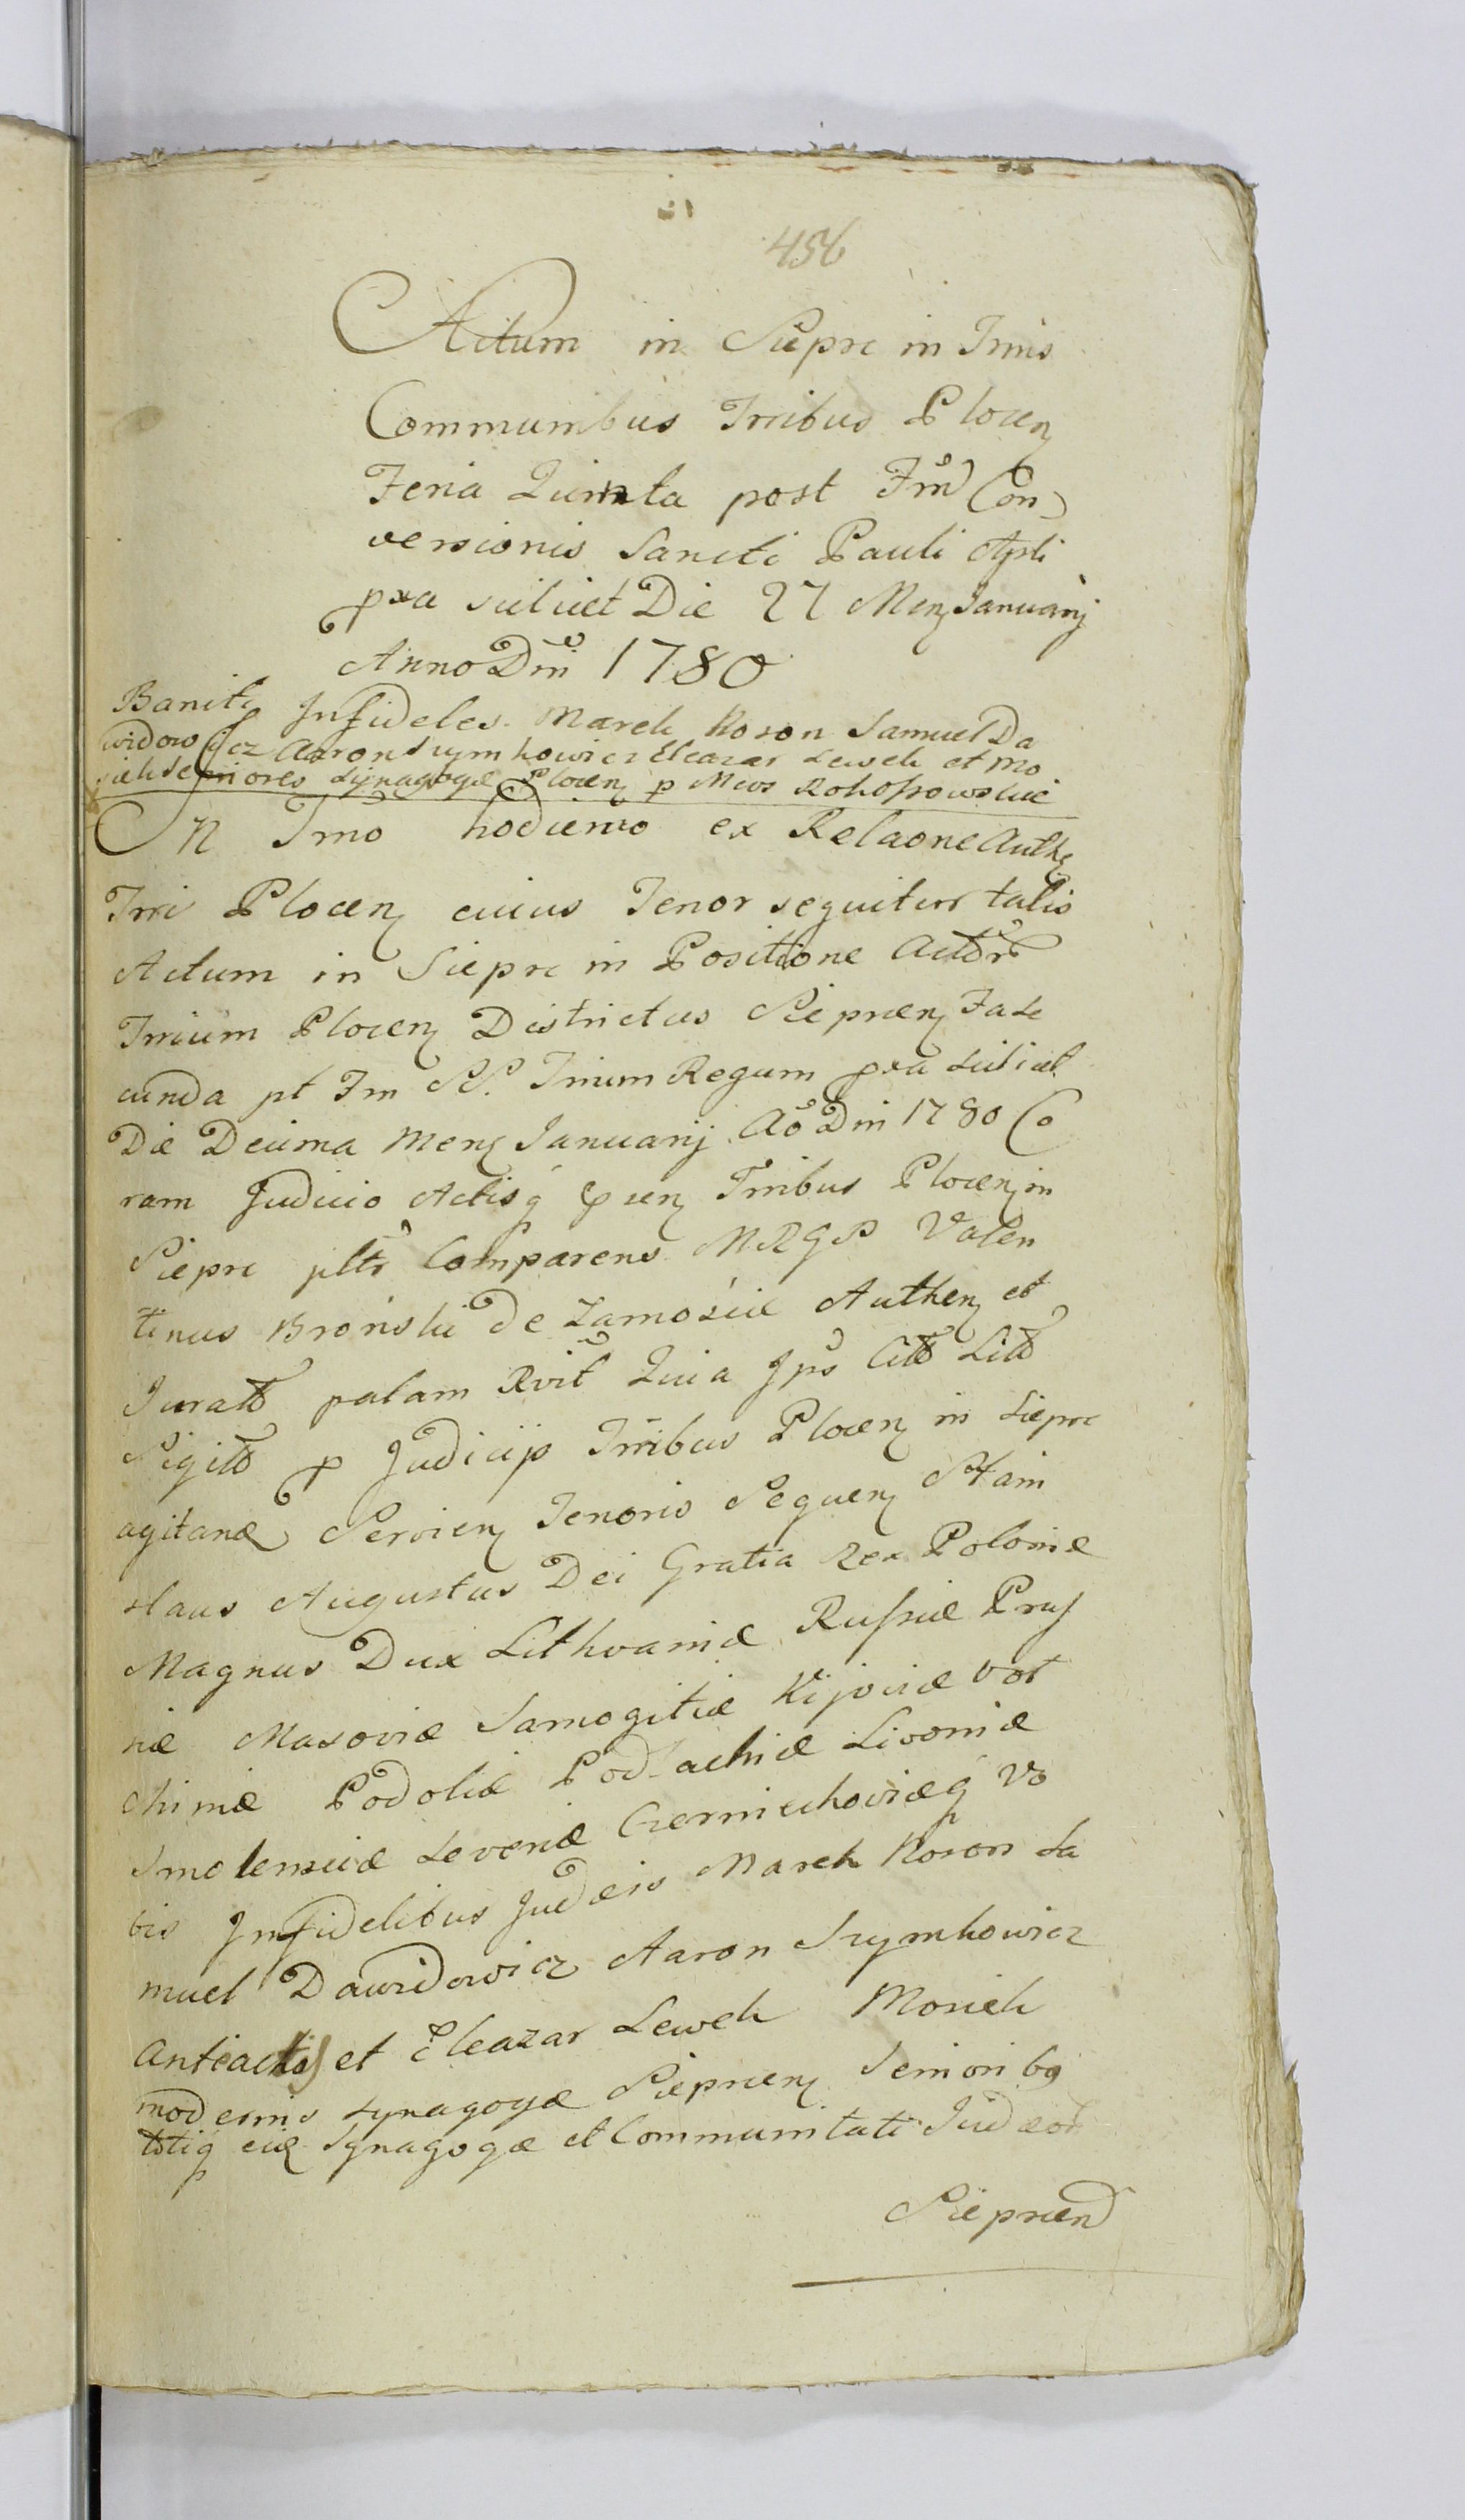 456
Actum in Siepre in Trmis
Communibus Trribus Plocen
Feria Quinta post Fm Con
versionis Sancti Pauli Apli
pxa scilicet Die 27 Men Januarij
Anno Dni 1780
Baniti Infideles Marek Koron Samuel Da
widowicz Aaron Szymkowicz Eleazar Lewek et Mo
siek Seniores Synagogæ Plocen p Mcos Rokossowskie
In Trmo hodierno ex Relaone Authen
Trri Plocen cuius Tenor sequitur talis
Actum in Siepre in Positione Actor
Trrium Plocen Districtus Sieprcen Fa Se
cunda pt Fm SS. Trium Regum pxa scilicet
Die Decima Men Januarij Ao Dni 1780 Co
ram Judicio Actisq pñcen Trribus Plocen in
Siepre pltr Comparens MRGP Valen
tinus Bronski de Zamoscie Authen et
Jurats palam Rvit Quia Jps Citt Litt
Sigitt p Judicijs Trribus Plocen in Siepre
agitand Servien Tenoris Sequen Stani
slaus Augustus Dei Gratia Rex Poloniæ
Magnus Dux Lithvaniæ Russiæ Prus
siæ Masoviæ Samogitiæ Kijoviæ Vol
chiniæ Podoliæ Podlachiæ Livoniæ
Smolensciæ Severiæ Czerniechoviæq Vo
bis Infidelibus Judæis Marek Koron Sa
muel Dawidowicz Aaron Szymkowicz
Anteactis et Eleazar Lewek Mosiek
modernis Synagogæ Sieprcen Seniori bq
totiq eiq Synagogæ et Communitati Judæor
Sieprcen